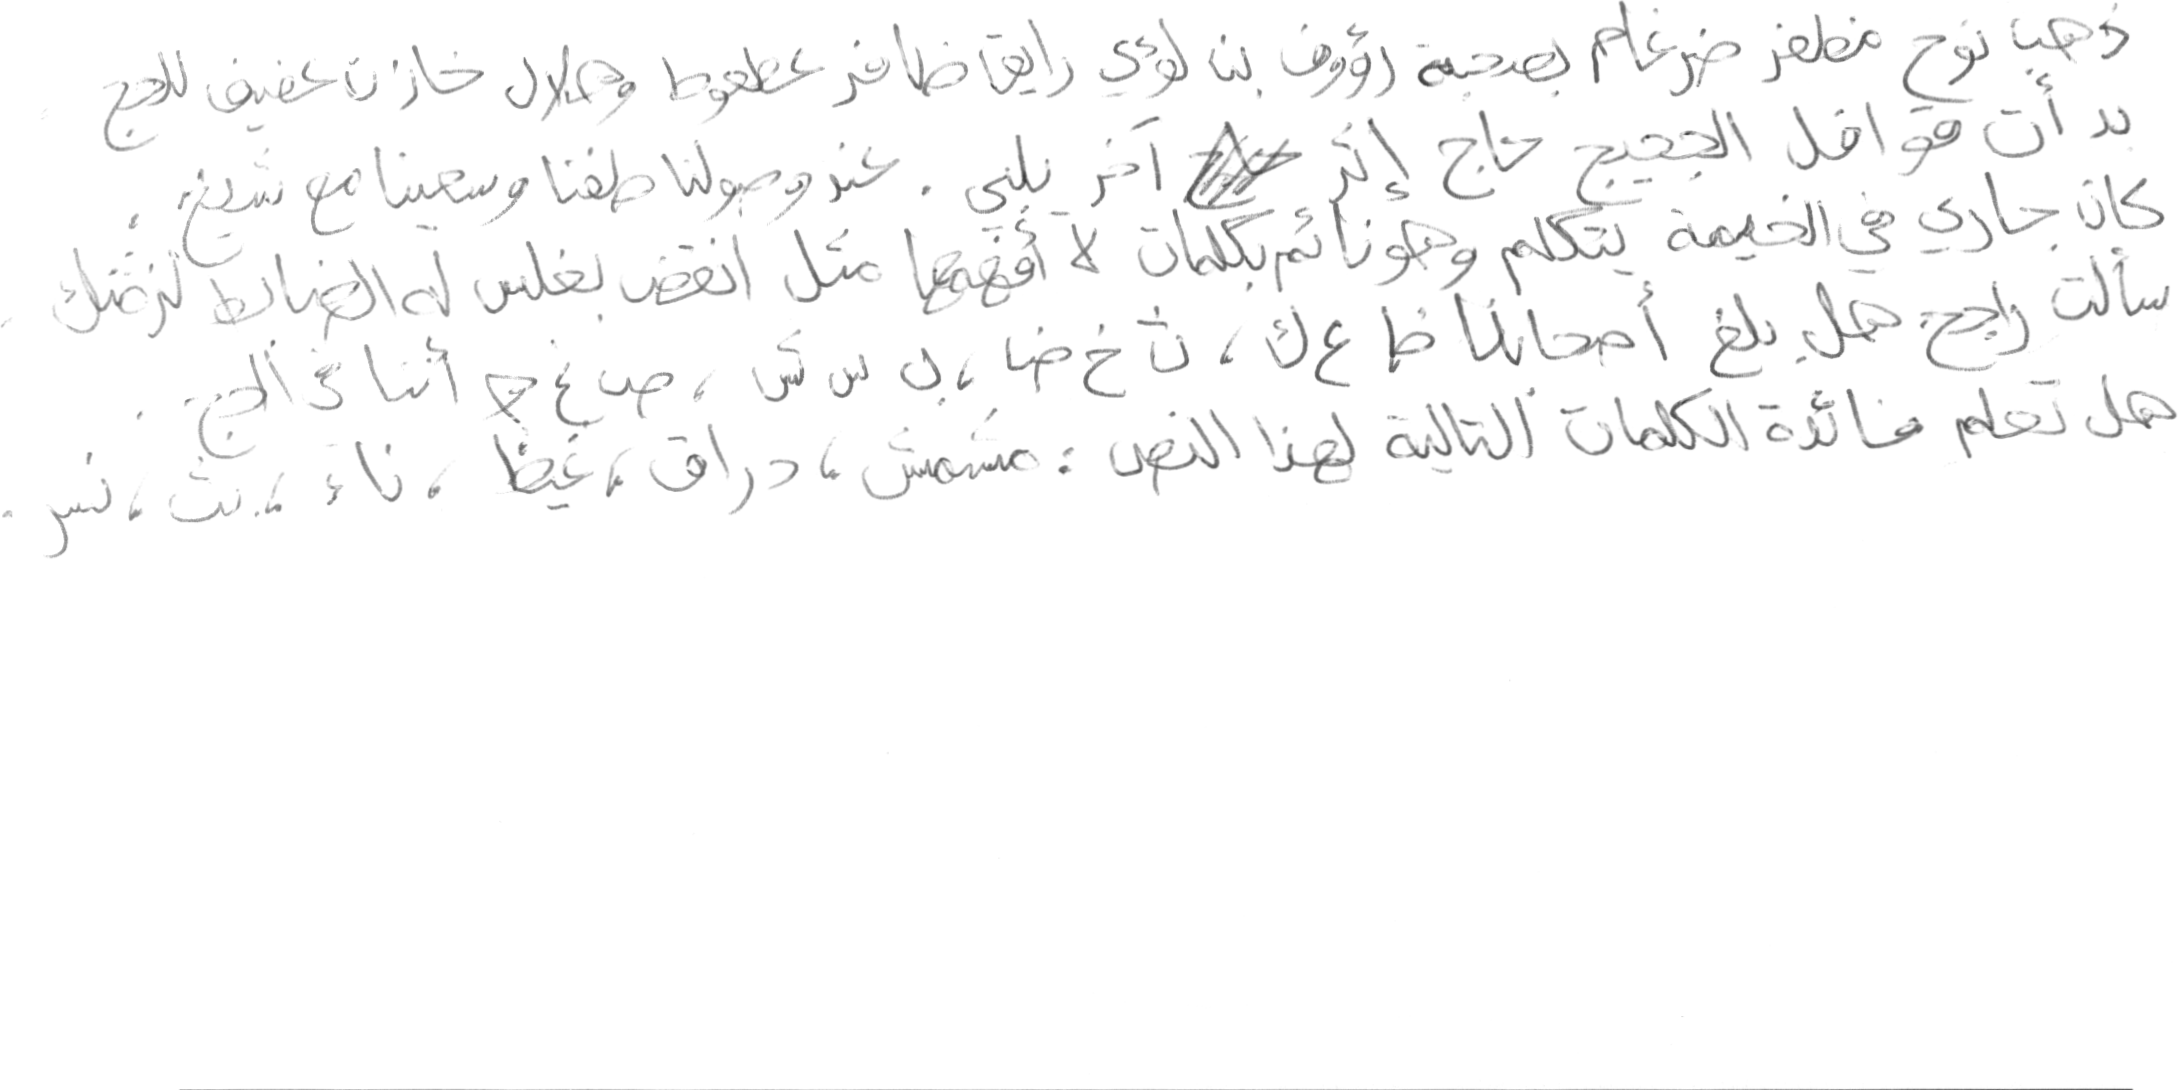 ذهب نوح مظفر ضرغام بصحبة رؤوف بن لؤي رايق ظافر عطعوط وهلال خازن عفيف للحج
بدأت قوافل الحجيج حاج إثر آخر يلبي . عند وصولنا طفنا وسعينا مع شيخ .
كان جاري في الخيمة يتكلم وهو نائم بكلمات لا أفهمها مثل انقض بغلس له الضابط
سألت راجح هل بلغ أصحابنا ظ ع ك ، ث خ ض ، ب س ش ، ص غ ج أننا في الحج .
هل تعلم فائدة الكلمات التالية لهذا النص : مشمش ، دراق ، غيظ ، ناء ، نث ، نسر .